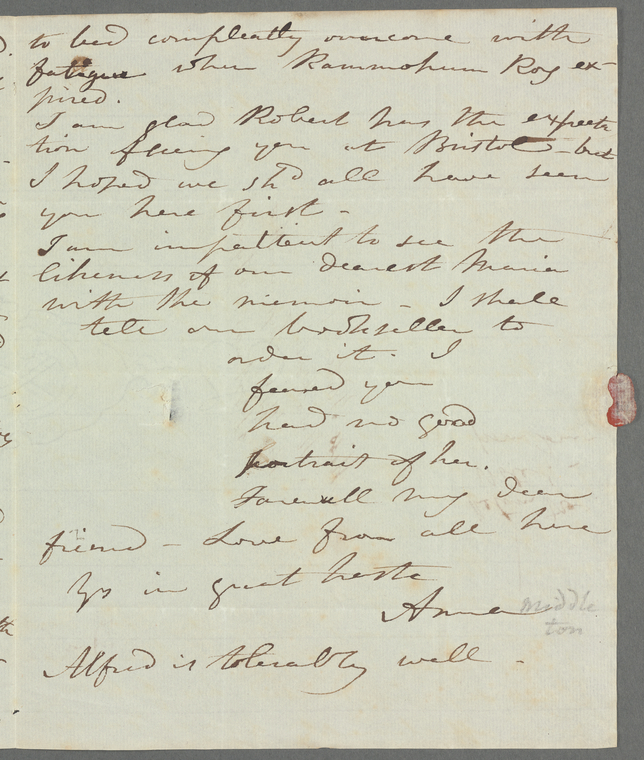 to bed compleatly overcome with
fatigue when Rammohun Roy ex-
pired.
I am glad Robert has the expecta
tion of seeing you at Bristol - but
I hoped we shd all have seen
you here first -
I am impatient to see the
likeness of our dearest Maria
with the memoir - I shall
tell our bookseller to
order it. I
feared you
had no good
portrait of her.
Farewell my dear
friend - Love from all here
Yrs in great haste
Anna middle
ton
Alfred is tolerably well -